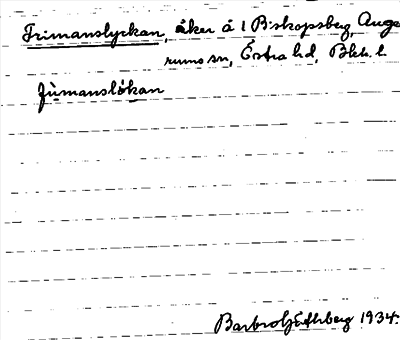 Frimanslyckan, åker å 1 Biskopsberg, Auge
rums sn, Östra hd, Blek. l
fri̇̀manslökan
Barbro Ljüthberg 1934.